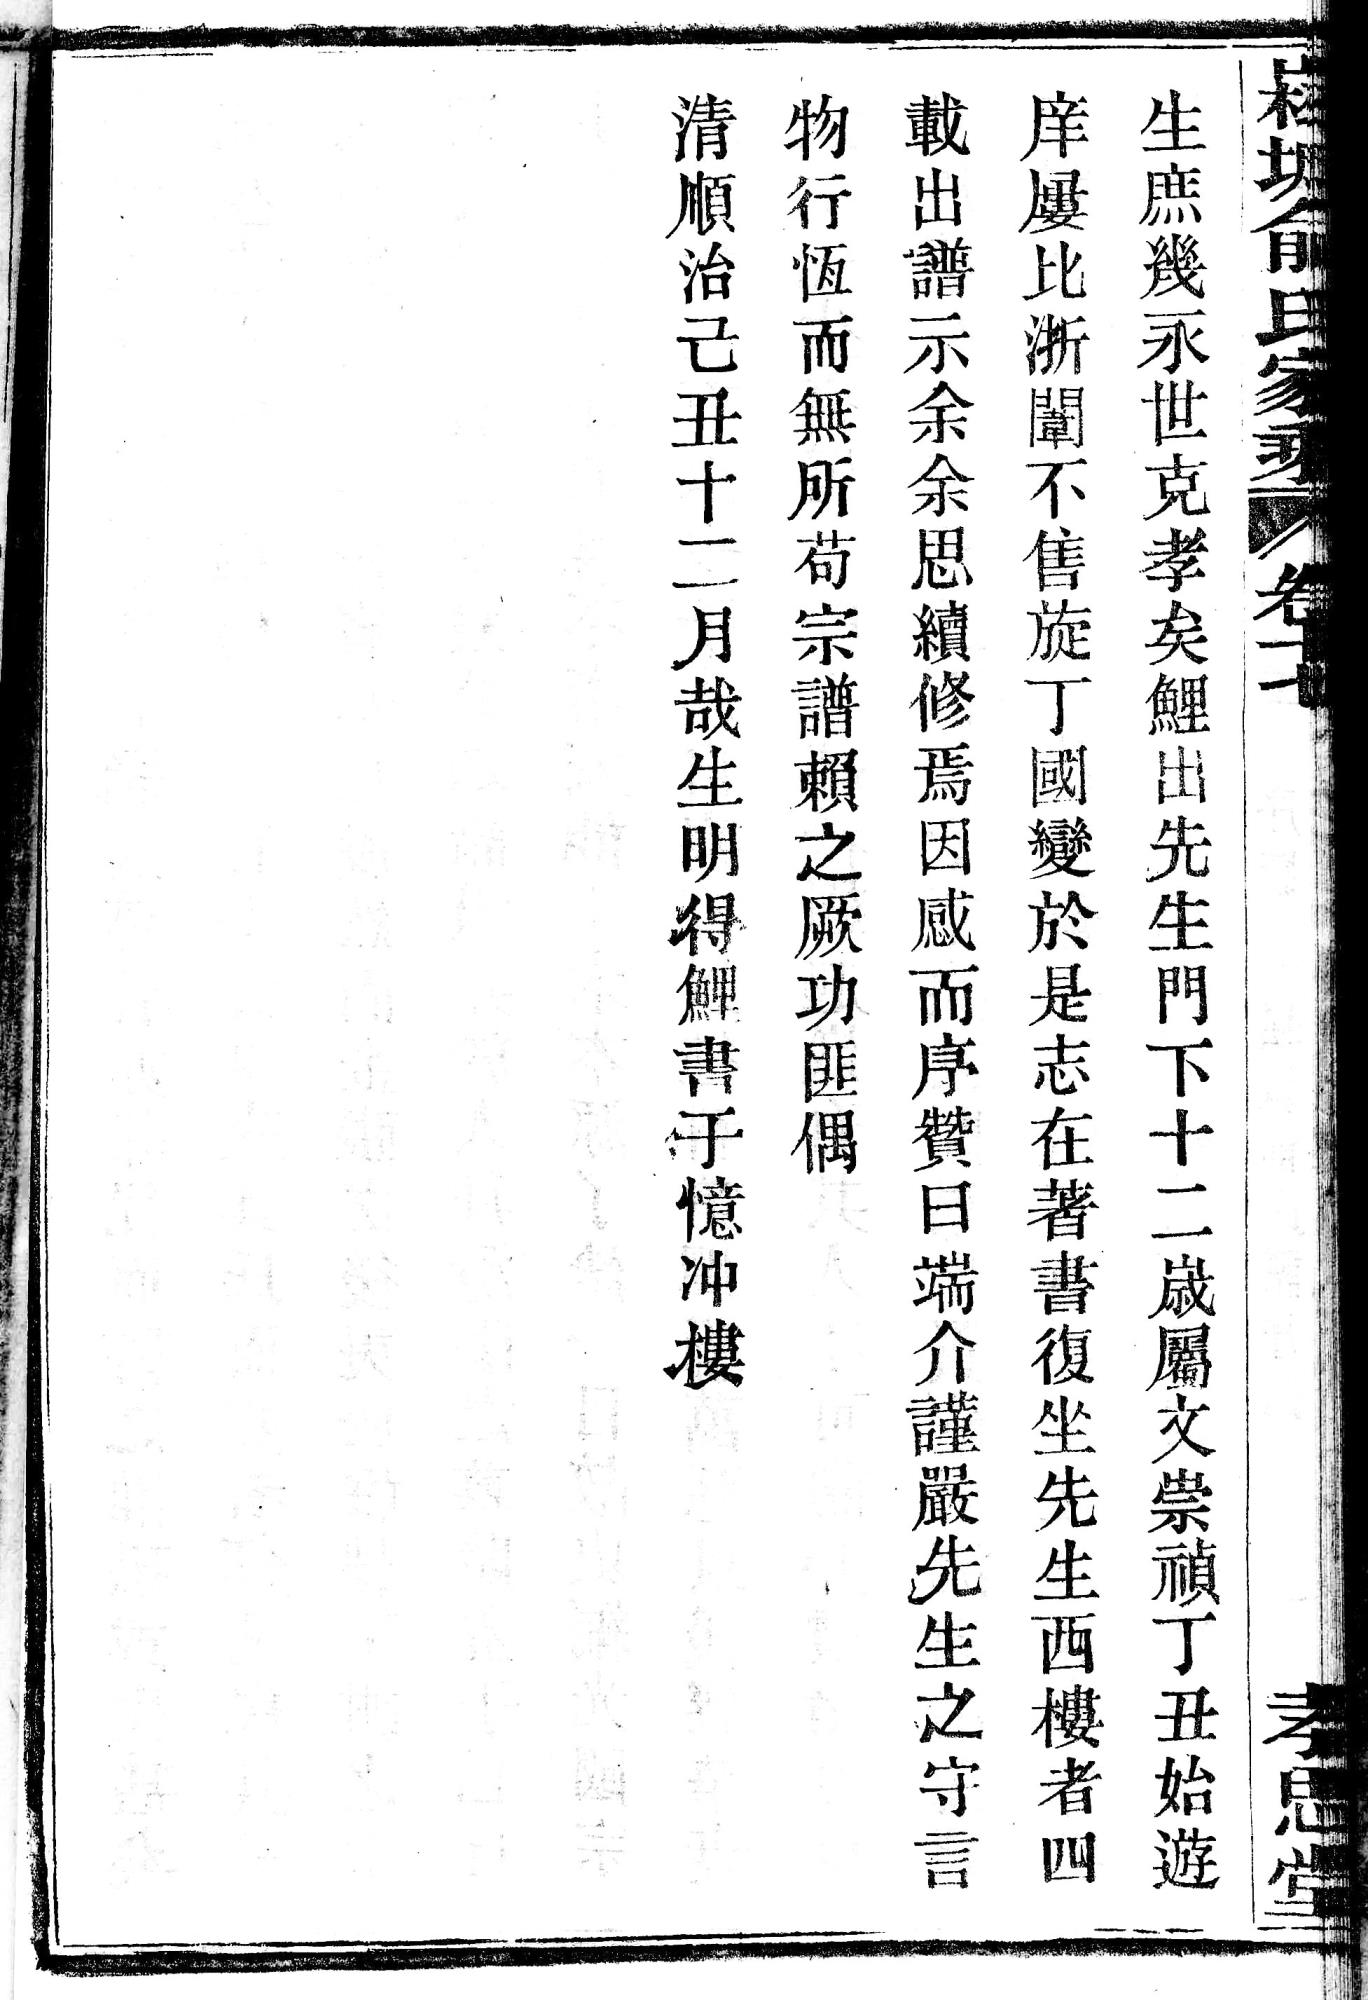 嵊塘俞氏家乘 卷十七 孝思堂
生庶幾永世克孝矣鯉出先生門下十二歲屬文崇禎丁丑始遊
庠屢比浙闈不售旋丁國變於是志在著書復坐先生西樓者四
載出譜示余余思續修焉因感而序贊曰端介謹嚴先生之守言
物行恆而無所苟宗譜賴之厥功匪偶
清順治己丑十二月哉生明得鯉書于憶冲樓